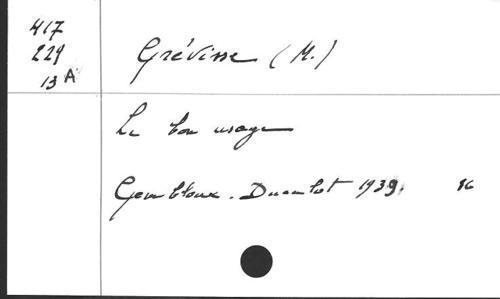 417
229
13 A
Grévisse (M.)
Le bon usage
Gembloux. Duculot 1939.
16